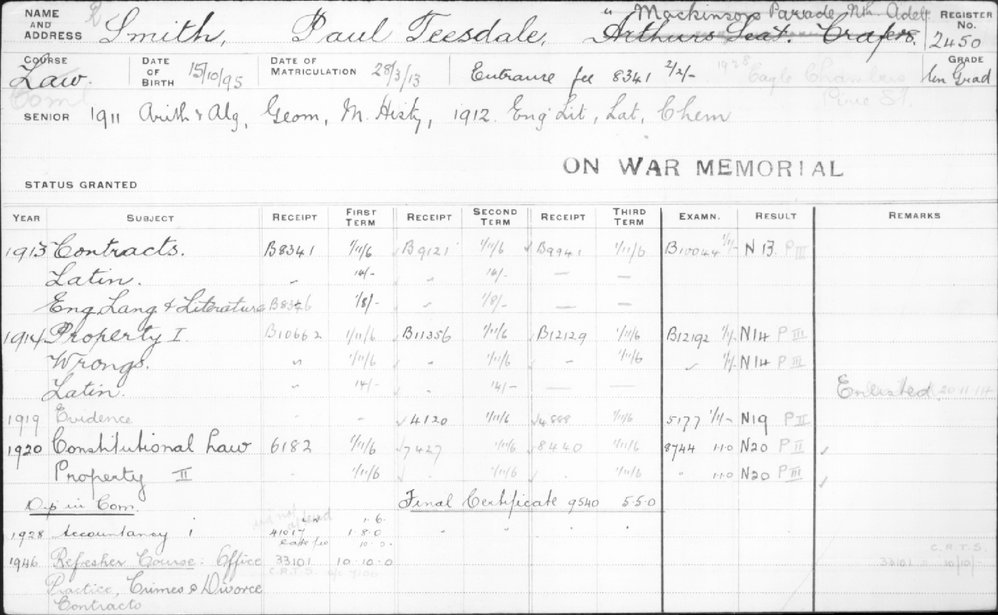 NAME AND ADDRESS Smith, Paul Teesdale, Arthurs Seat. Crafers. " Mackinson Parade, Nth. Adel REGISTER No. 2450
COURSE Law. DATE OF BIRTH 15/10/95 DATE OF MATRICULATION 28/3/13 Entrance fee 8341 2/2/- 1928 Eagle Chambers GRADE
Coml Pirie St.
SENIOR 1911 Arith & Alg, Geom, M. Histy, 1912. Eng Lit, Lat, Chem
ON WAR MEMORIAL
STATUS GRANTED
YEAR SUBJECT RECEIPT FIRST TERM RECEIPT SECOND TERM RECEIPT THIRD TERM EXAMN. RESULT REMARKS
1913 Contracts. B8341 1/11/6 B9121 1/11/6 B9941 1/11/6 B10044 1/1/- N 13. P III
Latin. " 14/- " 14/- — —
Eng. Lang & Literature B8346 1/8/- " 1/8/- — —
1914 Property I. B10662 1/11/6 B11356 1/11/6 B12129 1/11/6 B12192 1/1/- N14 P III
Wrongs. " 1/11/6 " 1/11/6 " 1/11/6 " 1/1/- N14 P III
Latin. " 14/- " 14/- — — Enlisted. 20.11.14
1919 Evidence - - 4120 1/11/6 4888 1/11/6 5177 1/1/- N19 P II
1920 Constitutional Law 6182 1/11/6 7427 1/11/6 8440 1/11/6 8744 1.1.0 N20 P II
Property II " 1/11/6 " 1/11/6 " 1/11/6 " 1.1.0 N20 P III
Dip in Com. Final Certificate 9540 5.5.0
1.6.
1928 Accountancy i 41017 1.8.0 " " " "
late fee 10.0
1946 Refresher Course: Office 33101 10.10.0 C.R.T.S.
Practice, Crimes & Divorce C.R.T.S. 33101 10/10/-
Contracts